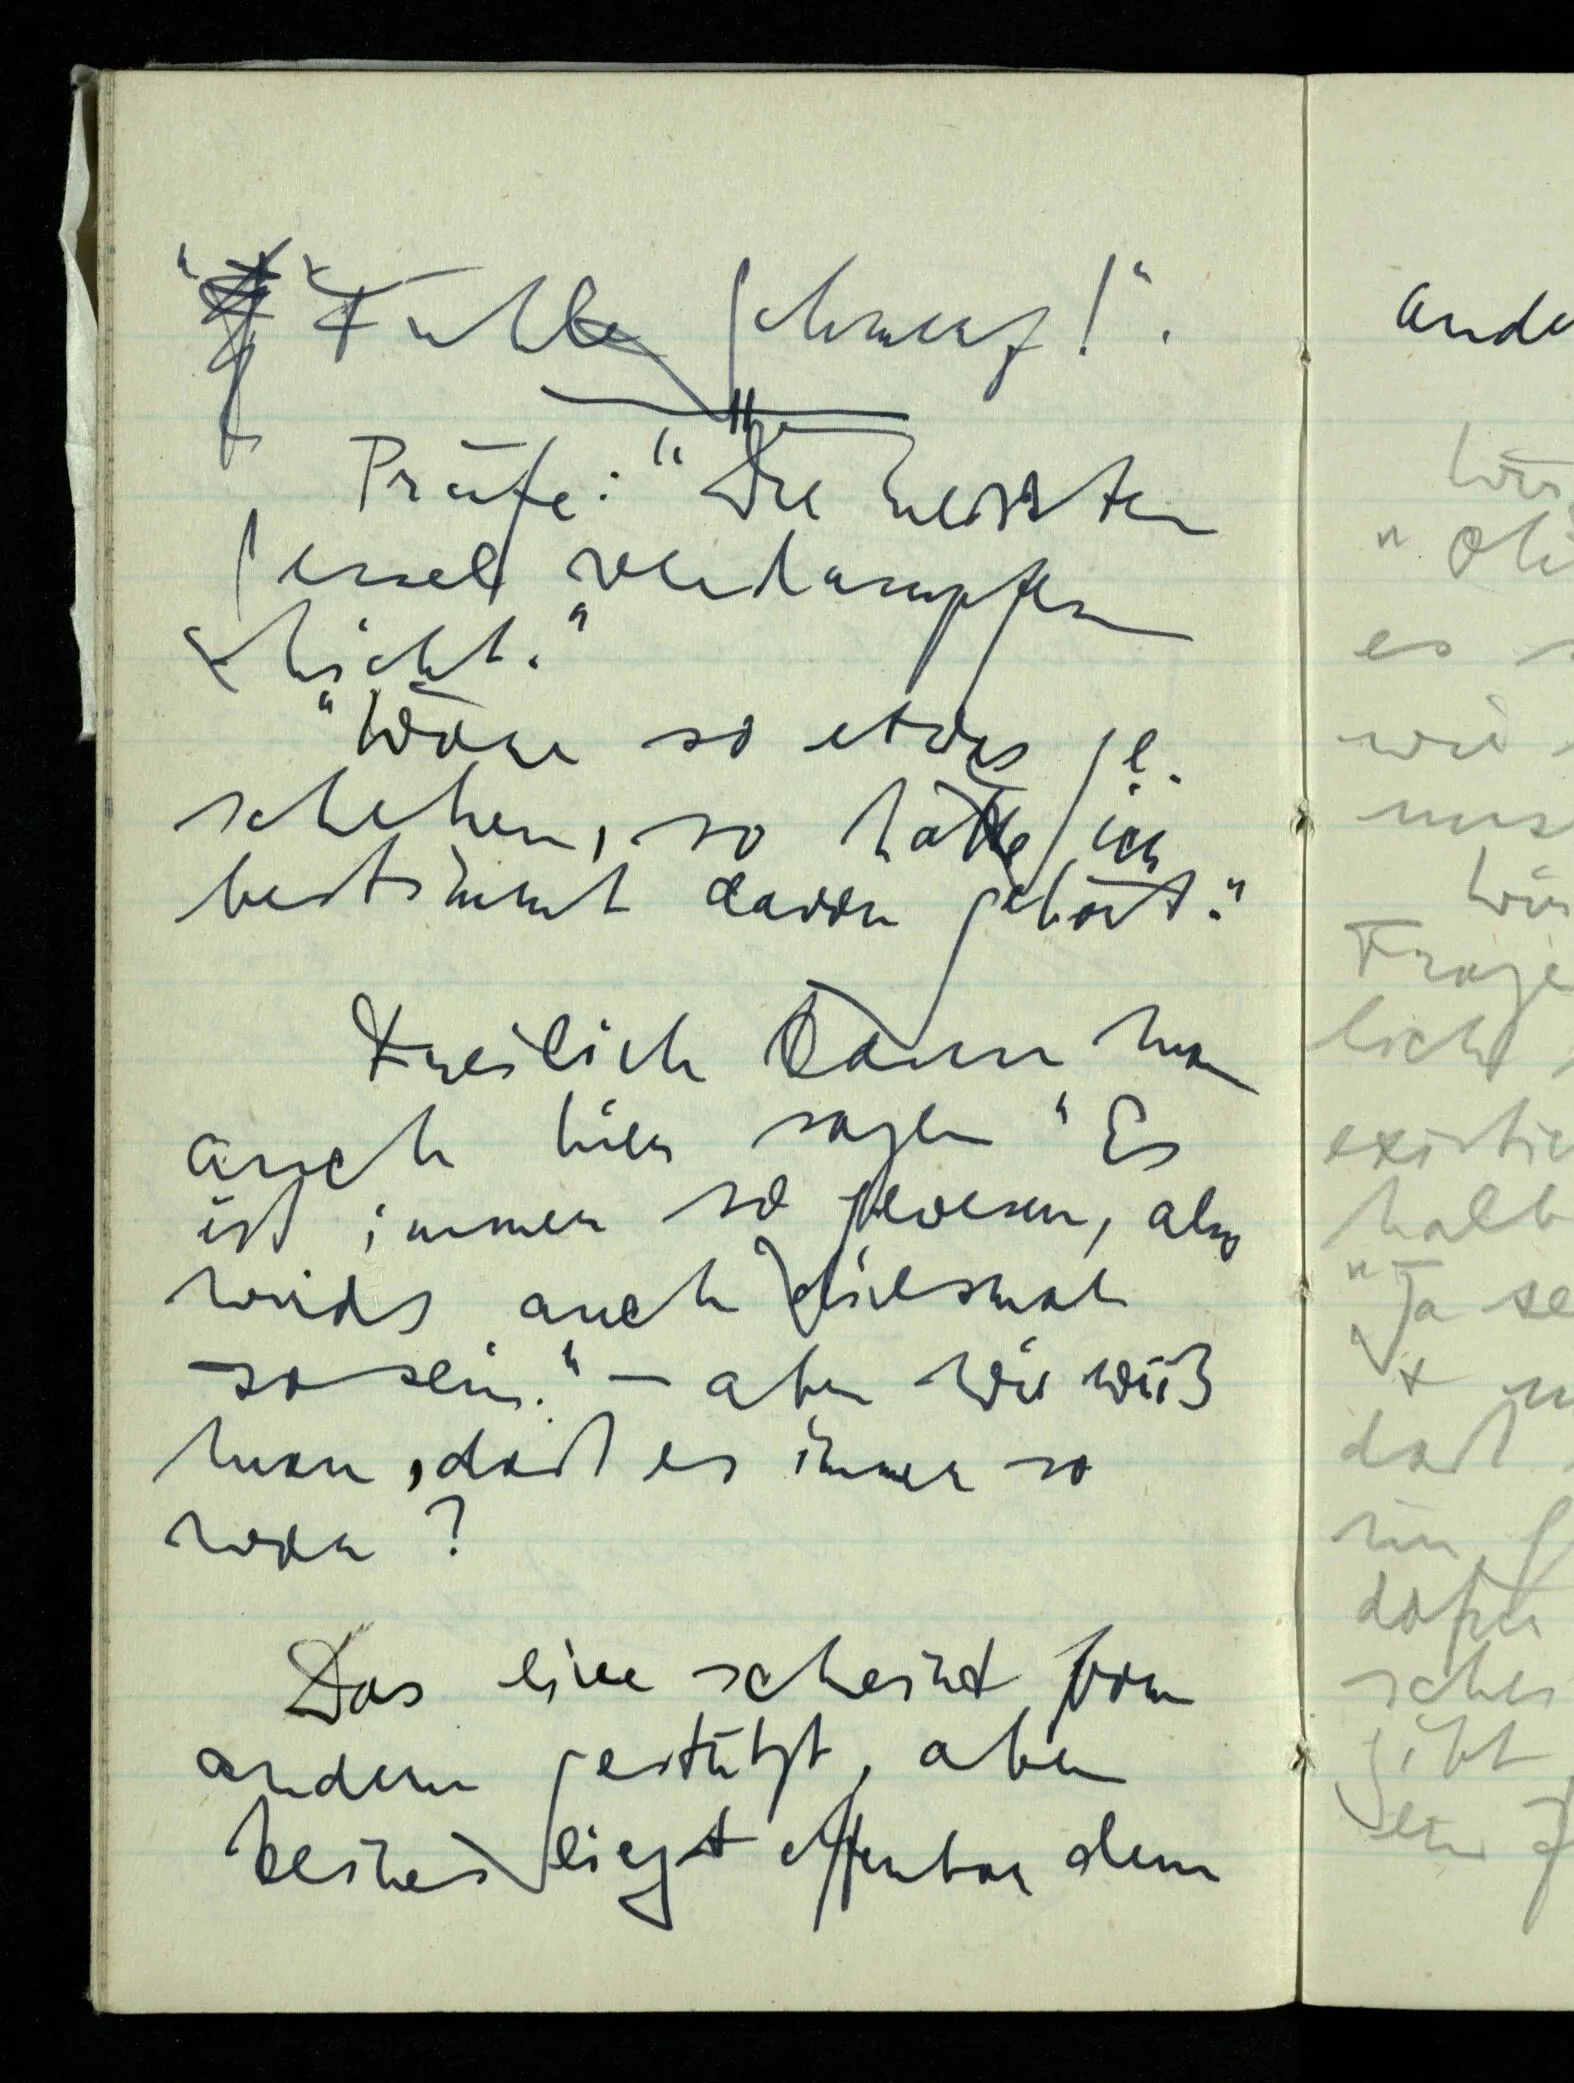 "Fühle Schmerz!".
Prüfe: "Die meisten
Sessel verdampfen
nicht."
"Wäre so etwas ge-
schehen, so hätte ich
bestimmt davon gehört."
Freilich kann man
auch hier sagen "Es
ist immer so gewesen, also
wirds auch diesmal
so sein." – aber wie weiß
man, daß es immer so
war?
Das eine scheint vom
andern gestützt, aber
keines liegt offenbar dem
ande
"
es
wie
Frage
lich
existie
halb
"Ja se
daß
im
dafür
schei
gibt